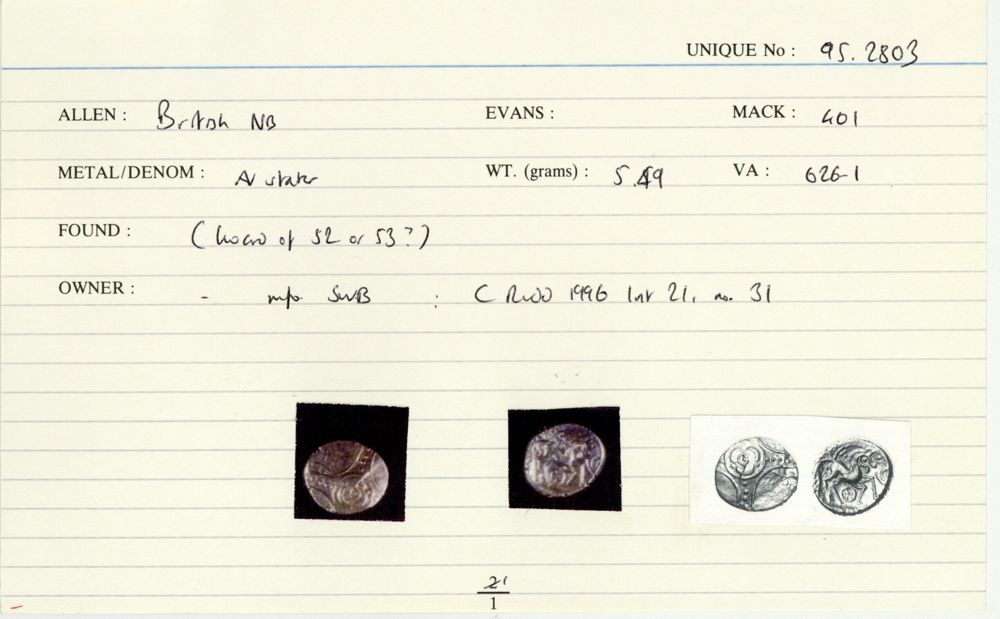 UNIQUE No : 95.2803
ALLEN : British NB EVANS : MACK : 401
METAL/DENOM : AV stater WT. (grams) : 5.49 VA : 626-1
FOUND : (hoard of 52 or 53?)
OWNER : - info SWB : C Rudd 1996 list 21, no. 31
21
1